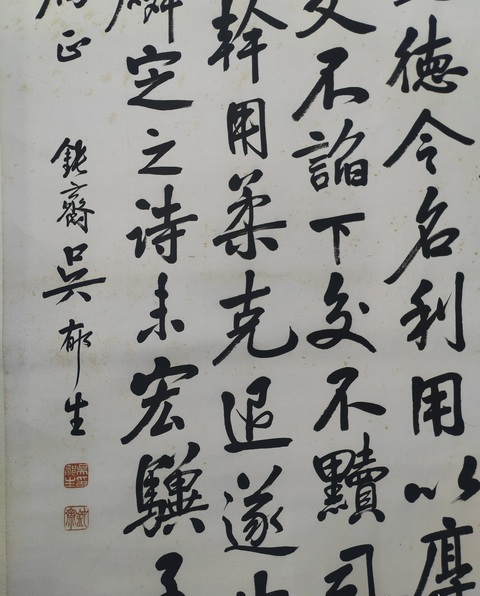 德令名利用以厚
交不諂下交不黷司
幹用柔克退遂
麟定之詩未宏驥子
正
鈍齋吳郁生